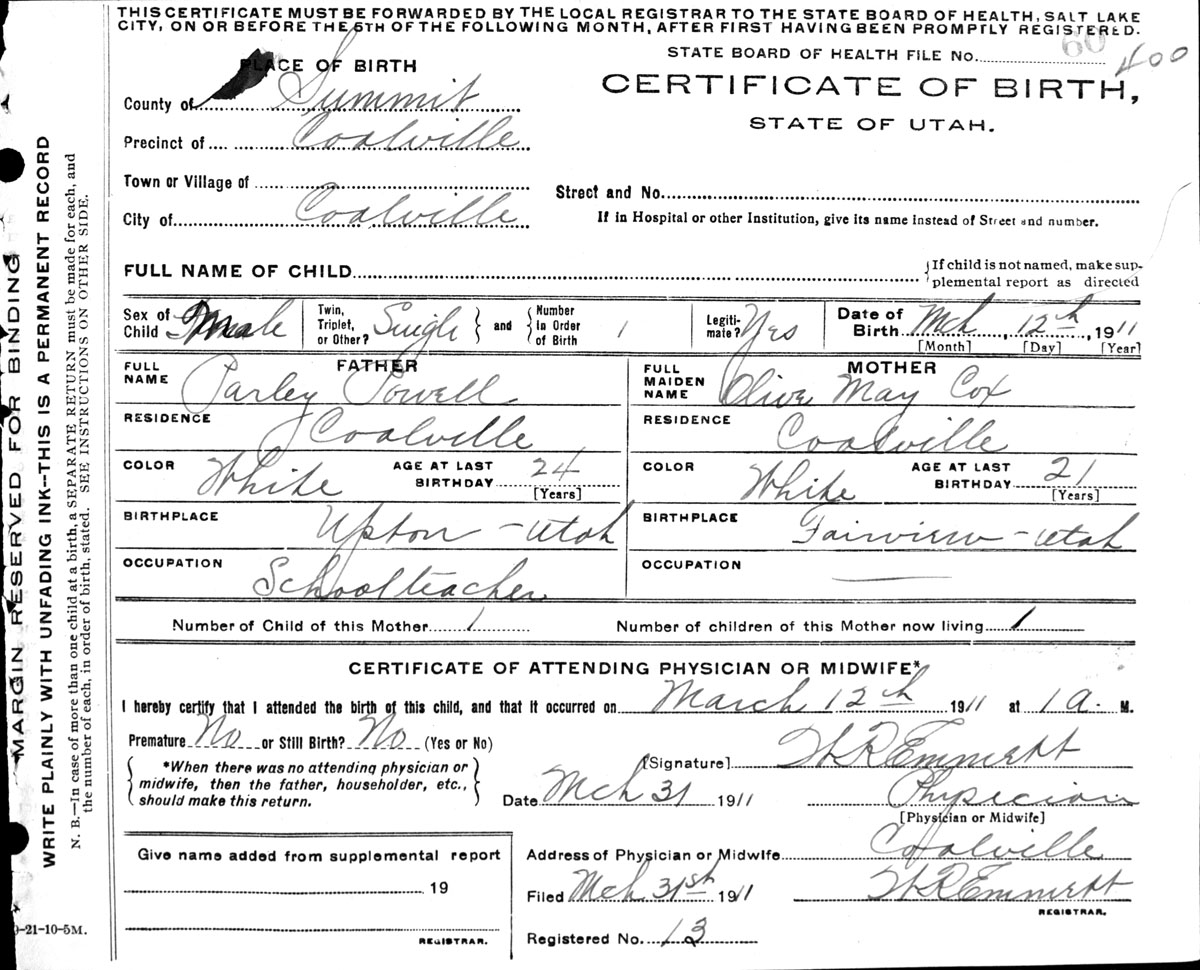 THIS CERTIFICATE MUST BE FORWARDED BY THE LOCAL REGISTRAR TO THE STATE BOARD OF HEALTH, SALT LAKE
CITY, ON OR BEFORE THE 5TH OF THE FOLLOWING MONTH, AFTER FIRST HAVING BEEN PROMPTLY REGISTERED.
STATE BOARD OF HEALTH FILE No. 60 400
PLACE OF BIRTH
CERTIFICATE OF BIRTH,
STATE OF UTAH.
County of Summit
Precinct of Coalville
Town or Village of
City of Coalville
Street and No.
If in Hospital or other Institution, give its name instead of Street and number.
FULL NAME OF CHILD
If child is not named, make sup-
plemental report as directed
Sex of Child male
Twin, Triplet, or Other? Single and Number In Order of Birth 1
Legiti-mate? Yes
Date of Birth Mch 12th, 1911
[Month] [Day] [Year]
FATHER
FULL NAME Parley Powell
RESIDENCE Coalville
COLOR White AGE AT LAST BIRTHDAY 24
[Years]
BIRTHPLACE Upton - Utah
OCCUPATION Schoolteacher
MOTHER
FULL MAIDEN NAME Olive May Cox
RESIDENCE Coalville
COLOR White AGE AT LAST BIRTHDAY 21
[Years]
BIRTHPLACE Fairview - Utah
OCCUPATION —
Number of Child of this Mother 1 Number of children of this Mother now living 1
CERTIFICATE OF ATTENDING PHYSICIAN OR MIDWIFE*
I hereby certify that I attended the birth of this child, and that it occurred on March 12th 1911 at 1 a. M.
Premature No or Still Birth? No (Yes or No)
*When there was no attending physician or
midwife, then the father, householder, etc.,
should make this return.
[Signature] W R Emmett
Date Mch 31 1911 Physician
[Physician or Midwife]
Give name added from supplemental report
19
REGISTRAR.
Address of Physician or Midwife Coalville
Filed Mch 31st 1911 W R Emmett
REGISTRAR.
Registered No. 13
MARGIN RESERVED FOR BINDING
WRITE PLAINLY WITH UNFADING INK--THIS IS A PERMANENT RECORD
N. B.—In case of more than one child at a birth, a SEPARATE RETURN must be made for each, and
the number of each, in order of birth, stated. SEE INSTRUCTIONS ON OTHER SIDE.
-21-10-5M.